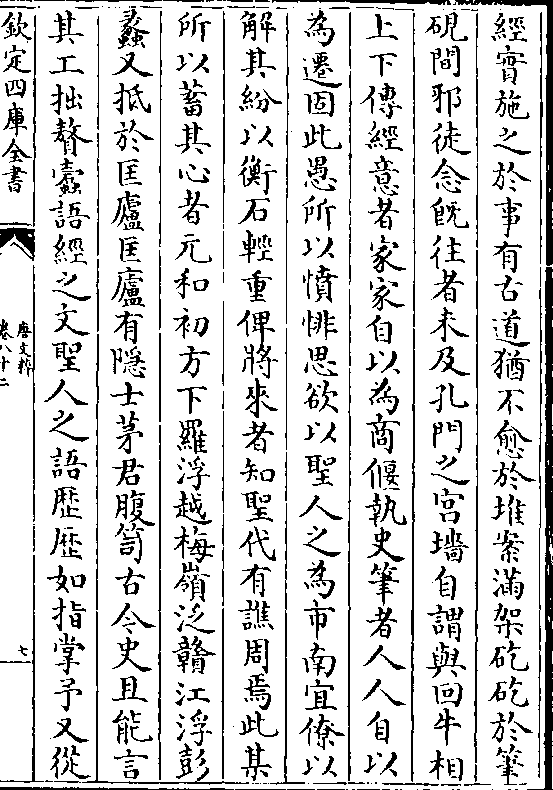 經實施之於事有古道猶不愈於堆案滿架矻矻於筆
硯間邪徒念旣往者未及孔門之宫墻自謂與回牛相
上下傳經意者家家自以為商偃執史筆者人人自以
為遷固此愚所以憤悱思欲以聖人之為市南宜僚以
解其紛以衡石輕重俾將來者知聖代有譙周焉此某
所以蓄其心者元和初方下羅浮越梅嶺泛贛江浮彭
蠡又抵於匡廬匡廬有隱士茅君腹笥古今史且能言
其工拙贅蠧語經之文聖人之語歴歴如指掌予又從
欽定四庫全書
唐文粹
卷八十二
七